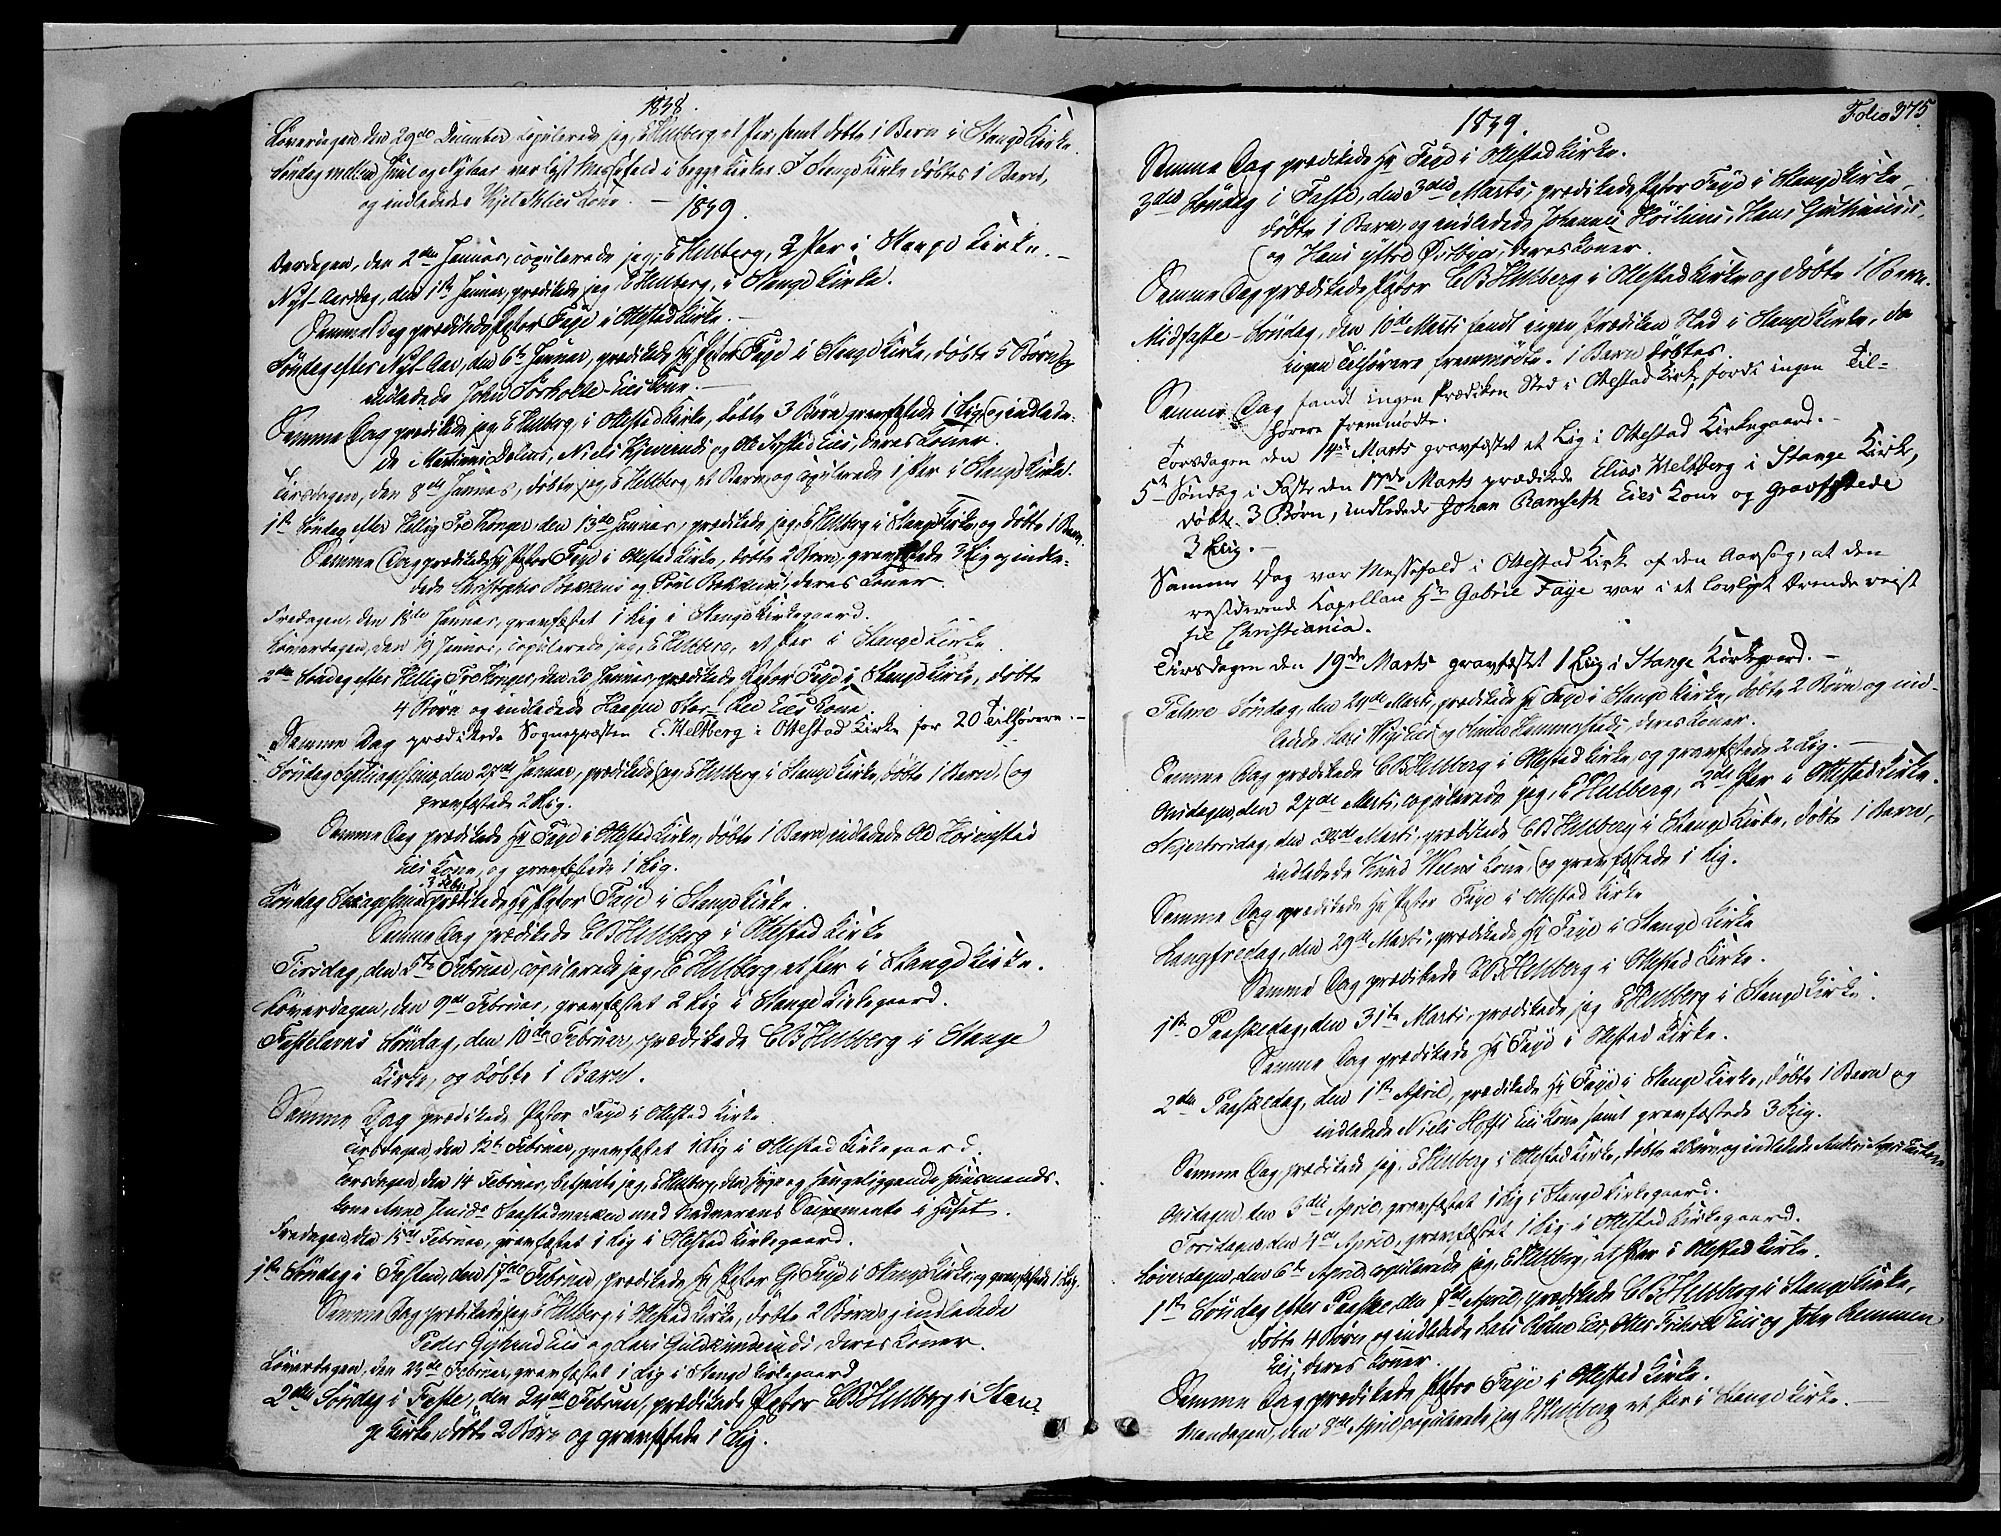 1838.
Løverdagen den 29de December copulerede jeg, E Heltberg et Par, samt døbte 1 Barn i Stange Kirke.
Søndag mellem Juul og Nytaar var lyst Messefald i begge Kirker. I Stange Kirke døbtes 1 Barn,
og indlededes Kone. —
1839.
Onsdagen, den 2den Januar, copulerede jeg, E Heltberg, 2 Par i Stange Kirke. —
Nyt-Aarsdag, den 1ste Januar, prædikede jeg E Heltberg, i Stange Kirke.
Samme Dag prædikede Pastor Faye i Ottestad Kirke. —
Søndag efter Nyt-Aar, den 6te Januar, prædikede Hr Pastor Faye i Stange Kirke, døbte 5 Børn og
indledede John Sørholte-Eies Kone. —
Samme Dag prædikede jeg E Heltberg, i Ottestad Kirke, døbte 3 Børn, gravfæstede 1 Lig og indlede-
de Martinus Dolmo, Niels og Ole Eies, deres Koner.
Tirsdagen, den 8de Januar, døbte jeg, E Heltberg, et Barn og copulerede 1 Par i Stange Kirke.
1ste Søndag efter Hellig Tre Konger, den 13de Januar, prædikede jeg, E Heltberg i Stange Kirke, og døbte 1 Barn.
Samme Dag prædikede Hr Pastor Faye i Ottestad Kirke, døbte 2 Børn, gravfæstede 3 Lig og indle-
dede Christopher Bekkens og Poul Bekkens, deres Koner.
Fredagen, den 18de Januar, gravfæstet 1 Lig i Stange Kirkegaard.
Løverdagen, den 19 Januar, copulerede jeg, E Heltberg, et Par i Stange Kirke.
2den Søndag efter Hellig Tre Konger, den 20 Januar, prædikede Pastor Faye i Stange Kirke, døbte
4 Børn og indledede Haagen Stor-Ree Eies Kone.
Samme Dag prædikede Sognepræsten E. Heltberg i Ottestad Kirke for 20 Tilhørere. —
Søndag Septuagesima, den 27de Januar, prædikede jeg, E Heltberg i Stange Kirke, døbte 1 Barn, og
gravfæstede 2 Lig.
Samme Dag prædikede Hr Faye i Ottestad Kirke, døbte 1 Barn, indledede Ole
Eies Kone, og gravfæstede 1 Lig.
3 Febr.
Søndag Sexagesima prædikede Hr Pastor Faye i Stange Kirke.
Samme Dag prædikede CB Heltberg i Ottestad Kirke
Tirsdag, den 5te Februar, copulerede jeg, E Heltberg, et Par i Stange Kirke.
Løverdagen, den 9de Februar, gravfæstet 2 Lig i Stange Kirkegaard.
Fastelavns Søndag, den 10de Februar, prædikede CB Heltberg i Stange
Kirke, og døbte 1 Barn.
Samme Dag prædikede Pastor Faye i Ottestad Kirke
Tirsdagen, den 12te Februar, gravfæstet 1 Lig i Ottestad Kirkegaard.
Torsdagen, den 14 Februar, betjente jeg, E Heltberg, den syge og sengeliggende Huusmands-
kone Anne Saastadmarken med Nadverens Sacramente i Huset.
Fredagen, den 15de Februar, gravfæstet 1 Lig i Ottestad Kirkegaard.
1ste Søndag i Fasten, den 17de Februar, prædikede Hr Pastor G. Faye i Stange Kirke, og gravfæstede 1 Lig.
Samme Dag prædikede jeg E Heltberg, i Ottestad Kirke, døbte 2 Børn og indledede
Peder Eies og Lars, deres Koner.
Løverdagen, den 23de Februar, gravfæstet 1 Lig i Stange Kirkegaard
2den Søndag i Faste, den 24de Februar, prædikede Pastor CB Heltberg i Stan-
ge Kirke, døbte 2 Børn og gravfæstede 1 Lig.
Folio 375
1839.
Samme Dag prædikede Hr Faye i Ottestad Kirke.
3die Søndag i Faste, den 3die Marts, prædikede Pastor Faye i Stange Kirke,
døbte 1 Barn, og indledede Johannes, Hans,
og Hans ystre Østbyes, deres Koner.
Samme Dag prædikede Pastor CB Heltberg i Ottestad Kirke og døbte 1 Barn.
Midfaste-Søndag, den 10de Marts fandt ingen Prædiken Sted i Stange Kirke, da
ingen Tilhørere fremmødte. 1 Barn døbtes.
Samme Dag fandt ingen Prædiken Sted i Ottestad Kirke, fordi ingen Til-
hørere fremmødte.
Torsdagen den 14de Marts gravfæstet et Lig i Ottestad Kirkegaard. —
5te Søndag i Faste den 17de Marts prædikede Elias Heltberg i Stange Kirke,
døbte 3 Børn, indledede Johan Ramseth Eies Kone og gravfæstede
3 Liig. —
Samme Dag var Messefald i Ottestad Kirke af den Aarsag, at den
residerende Kapellan Hr Gabriel Faye var i et lovligt Ærende reist
til Christiania.
Tirsdagen den 19de Marts gravfæstet 1 Liig i Stange Kirkegaard. —
Palme Søndag, den 24de Marts, prædikede Hr Faye i Stange Kirke, døbte 2 Børn og ind-
ledede Lars Eies og Hammerstads, deres Koner.
Samme Dag prædikede CB Heltberg i Ottestad Kirke og gravfæstede 2 Lig. —
Onsdagen, den 27de Marts, copulerede jeg, E Heltberg, 2de Par i Ottestad Kirke.
Skjertorsdag, den 28de Marts, prædikede CB Heltberg i Stange Kirke, døbte 1 Barn,
indledede Knud Kone, og gravfæstede 1 Lig.
Samme Dag prædikede Hr Pastor Faye i Ottestad Kirke
Langfredag, den 29de Marts, prædikede Hr Faye i Stange Kirke
Samme Dag prædikede CB Heltberg i Ottestad Kirke.
1ste Paaskedag, den 31te Marts, prædikede jeg E Heltberg i Stange Kirke.
Samme Dag prædikede Hr Faye i Ottestad Kirke.
2den Paaskedag, den 1ste April, prædikede Hr Faye i Stange Kirke, døbte 1 Barn og
indledede Niels Eies Kone samt gravfæstede 3 Lig.
Samme Dag prædikede jeg, E Heltberg, i Ottestad Kirke, døbte 2 Børn og indledede
Onsdagen, den 3die April, gravfæstet 1 Lig i Stange Kirkegaard.
Torsdagen, den 4de April, gravfæstet 1 Lig i Ottestad Kirkegaard.
Løverdagen, den 6te April, copulerede jeg, E Heltberg, et Par i Ottestad Kirke.
1ste Søndag efter Paaske, den 7de April, prædikede CB Heltberg i Stange Kirke,
døbte 4 Børn og indledede Lars Eies, Eies og John Remmen
Eies, deres Koner.
Samme Dag prædikede Pastor Faye i Ottestad Kirke.
Mandagen, den 8de April, copulerede jeg E Heltberg et Par i Stange Kirke. —